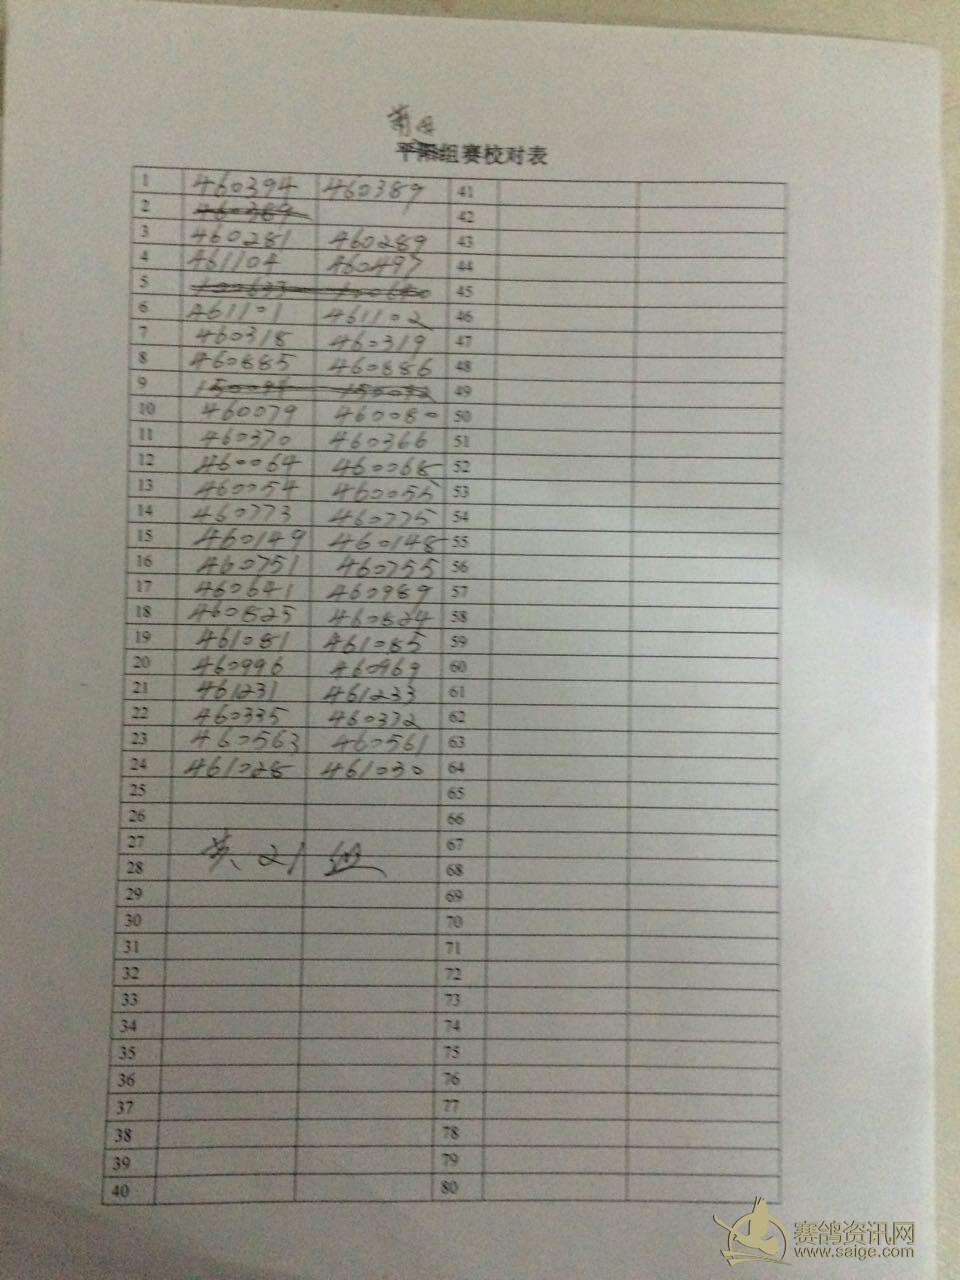 莆田
平阳组赛校对表
1 460394 460389 41
2 460389 42
3 460281 460289 43
4 461104 460497 44
5 45
6 461101 461102 46
7 460318 460319 47
8 460885 460886 48
9 49
10 460079 460080 50
11 460370 460366 51
12 460064 460068 52
13 460054 460055 53
14 460773 460775 54
15 460149 460148 55
16 460751 460755 56
17 460641 460989 57
18 460825 460824 58
19 461081 461085 59
20 460996 460969 60
21 461231 461233 61
22 460335 460372 62
23 460563 460561 63
24 461028 461030 64
25 65
26 66
27 67
共21组
28 68
29 69
30 70
31 71
32 72
33 73
34 74
35 75
36 76
37 77
38 78
39 79
40 80
赛鸽资讯网
www.saige.com